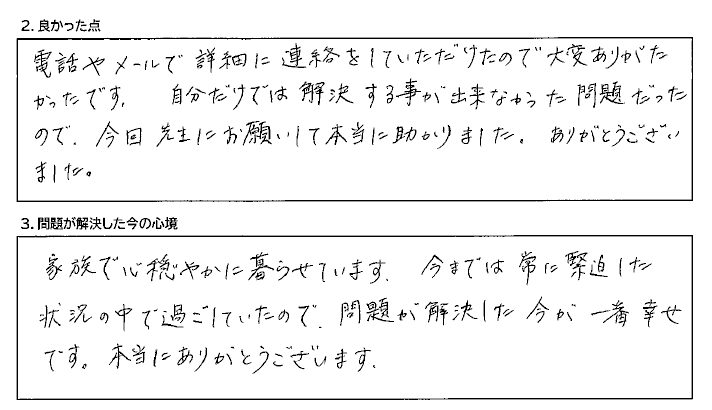 2. 良かった点
電話やメールで詳細に連絡をしていただけたので大変ありがた
かったです。 自分だけでは解決する事が出来なかった問題だった
ので、今回先生にお願いして本当に助かりました。ありがとうござい
ました。
3. 問題が解決した今の心境
家族で心穏やかに暮らせています。今までは常に緊迫した
状況の中で過ごしていたので、問題が解決した今が一番幸せ
です。本当にありがとうございます。